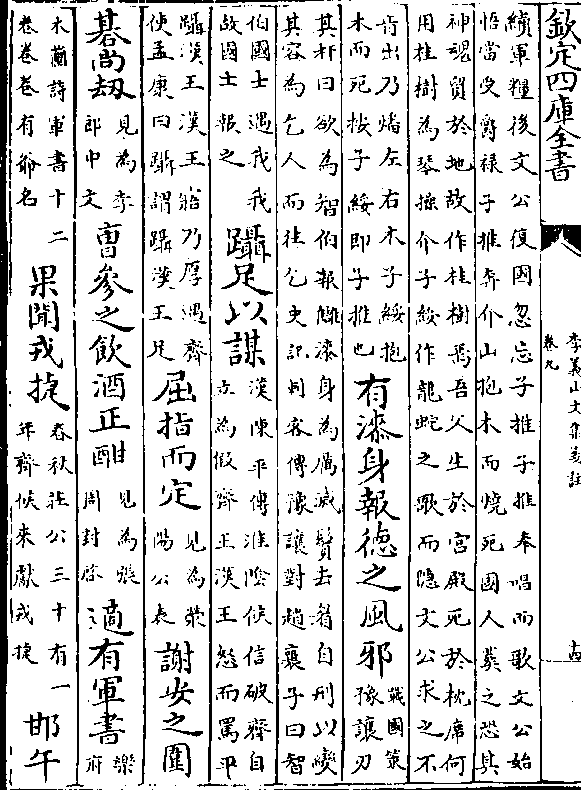 欽定四庫全書
李義山文集箋註
卷九
十四
續軍糧後文公復國忽忘子推子推奉唱而歌文公始
悟當受爵祿子推奔介山抱木而燒死國人葬之恐其
神魂賀於地故作桂樹焉吾父生於宮殿死於枕席何
用桂樹為琴操介子綏作龍蛇之歌而隱文公求之不
肯出乃燔左右木子綏抱
木而死按子綏即子推也
有漆身報德之風邪
戰國策
豫讓刃
其杅曰欲為智伯報讎漆身為厲滅鬚去眉自刑以變
其容為乞人而往乞史記刺客傳豫讓對趙襄子曰智
伯國士遇我我
故國士報之
躡足以謀
漢陳平傳淮陰侯信破齊自
立為假齊王漢王怒而罵平
躡漢王漢王寤乃厚遇齊
使孟康曰躡謂躡漢王足
屈指而定
見為滎
陽公表
謝安之圍
碁尚劫
見為李
郎中文
曹參之飲酒正酣
見為張
周封啓
適有軍書
樂
府
木蘭詩軍書十二
卷卷卷有爺名
果聞戎捷
春秋莊公三十有一
年齊侯來獻戎捷
邯午